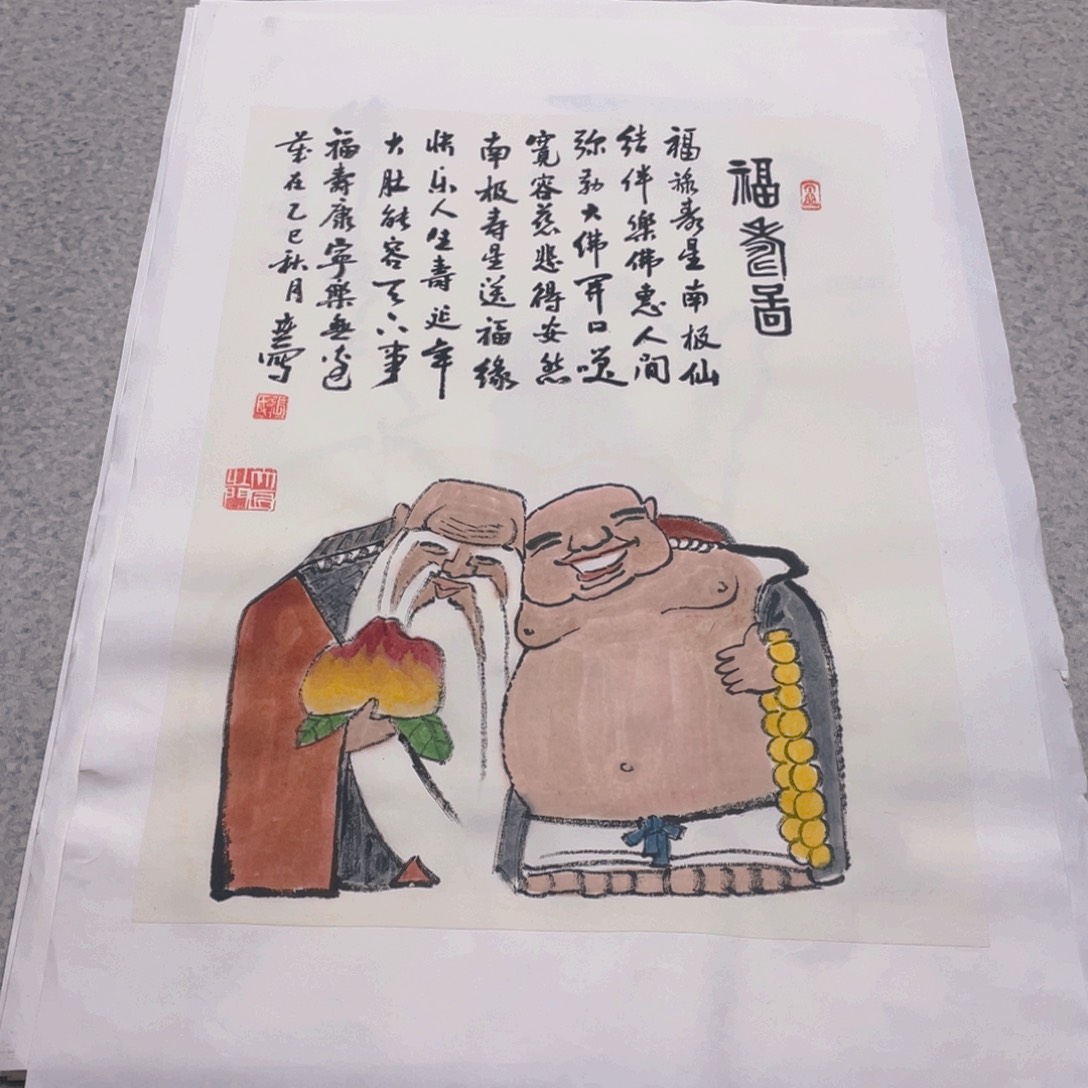 福壽啚
福禄寿星南极仙
结伴樂佛惠人间
弥勒大佛开口笑
寬容慈悲得安然
南极寿星送福缘
快乐人生壽延年
大肚能容天下事
福寿康寧樂無边
岁在乙巳秋月